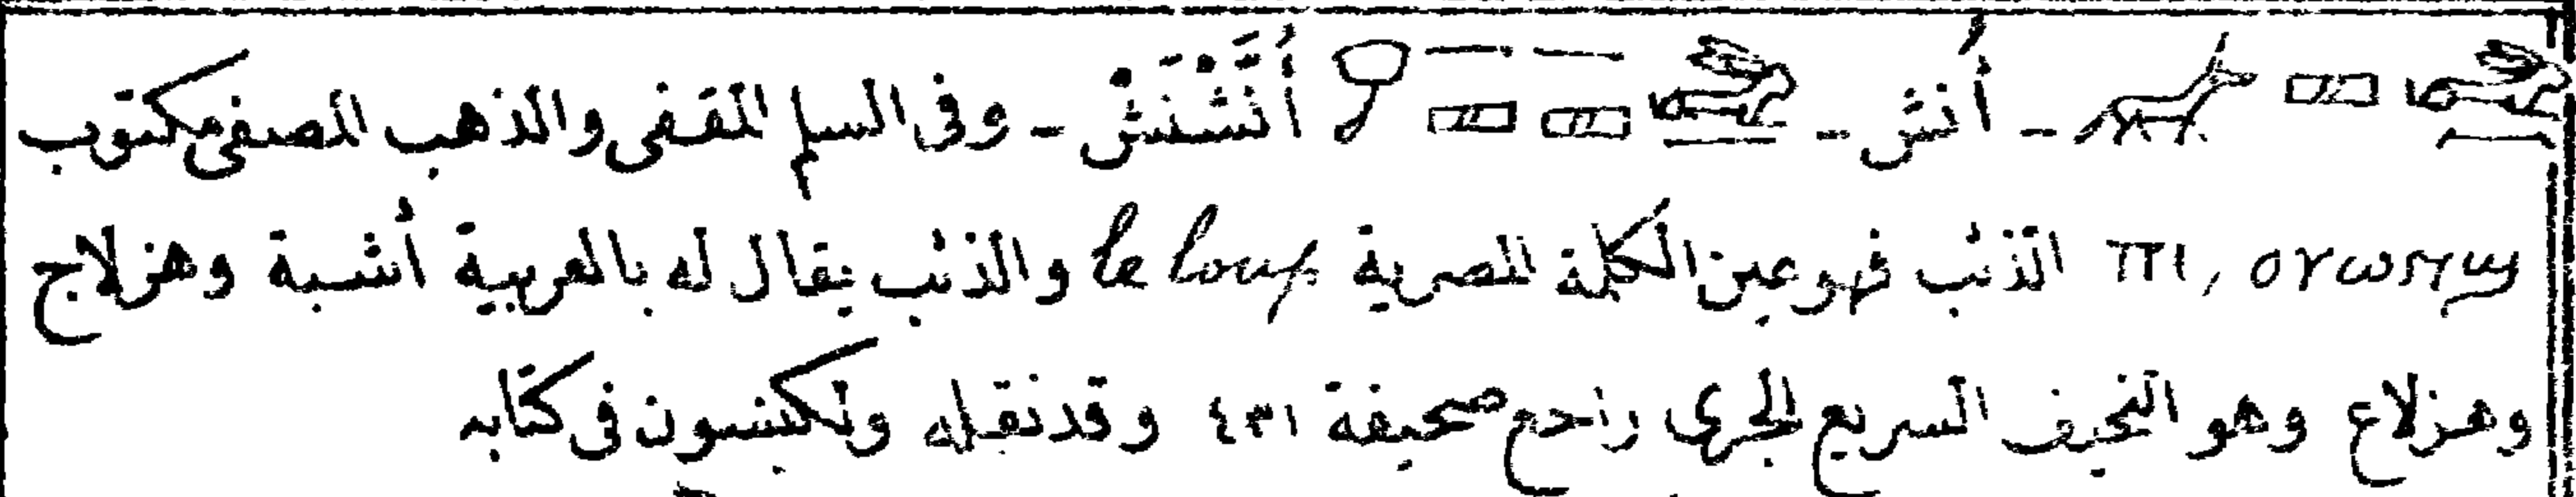 - أنش - أَنَشْنَشْ - وفى السلم المقفى والذهب المصفى مكتوب
ⲡⲓ, ⲟⲩⲱⲛϣ الذئب فهو عين الكلمة المصرية le loup والذئب يقال له بالعربية أشبة وهزلاج
وهزلاع وهو الخفيف السريع الجرى راجع صحيفة ٤٣١ وقد نقله ولكنسون فى كتابه